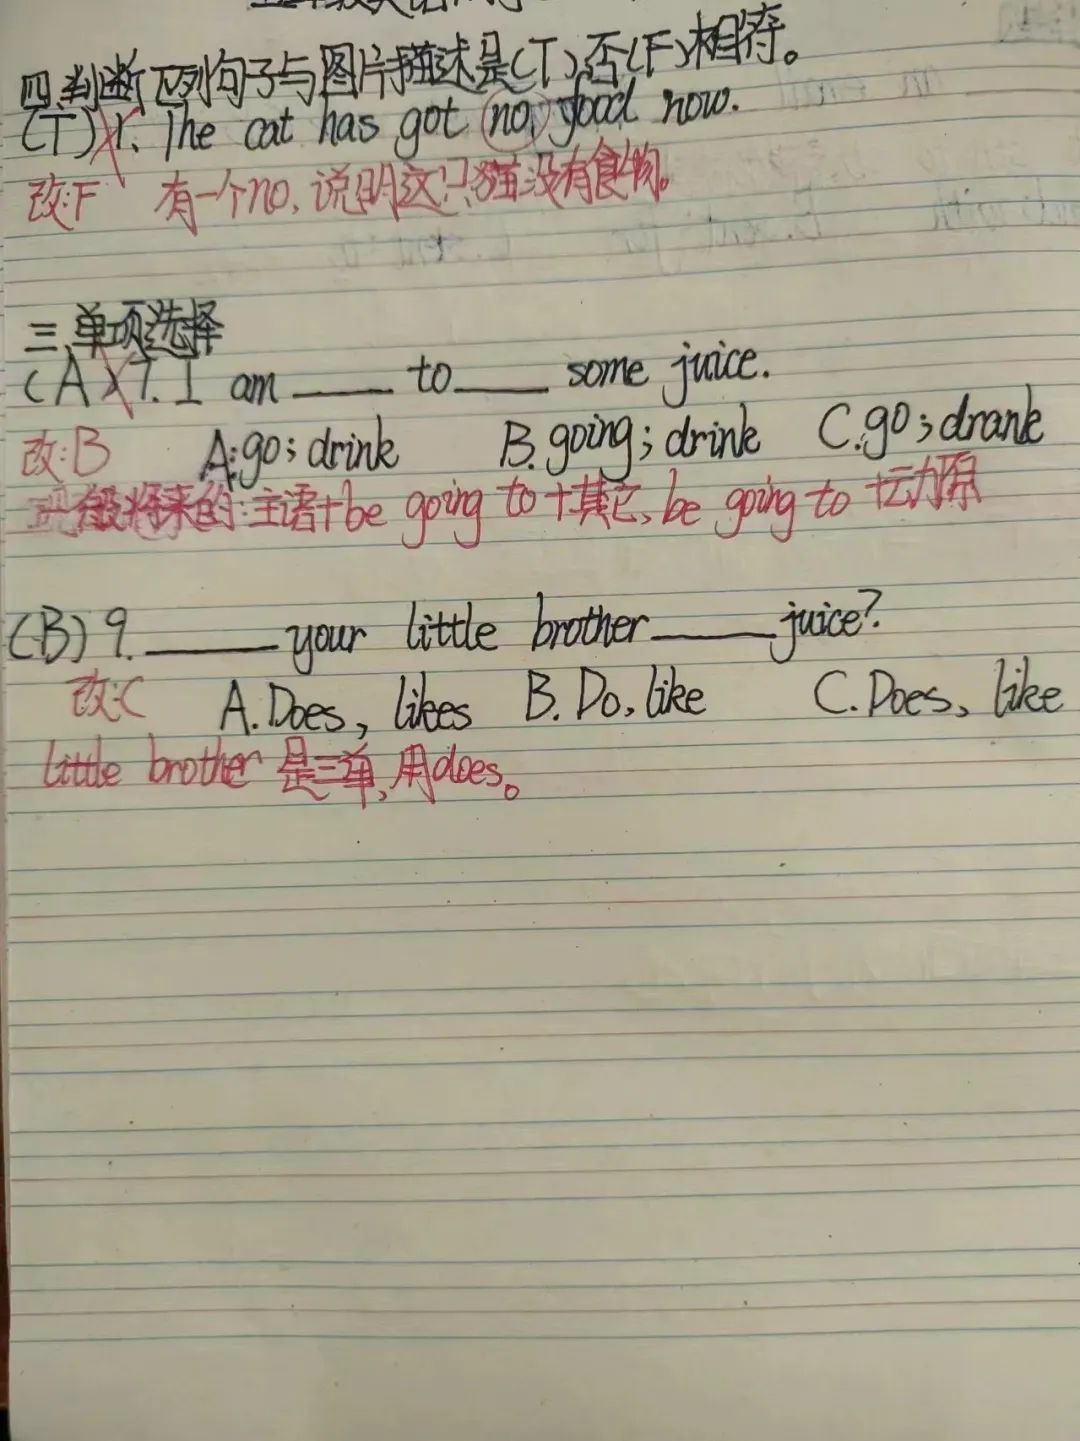 四.判断下列句子与图片描述是(T)否(F)相符。
(T)1. The cat has got no food now.
改:F 有一个no,说明这只猫没有食物。
三.单项选择
(A)7. I am ____ to ____ some juice.
改:B A.go; drink B.going; drink C.go; drank
一般将来的:主语+be going to+其它, be going to +动原
(B)9. ____ your little brother ____ juice?
改:C A.Does, likes B.Do, like C.Does, like
little brother 是三单,用does。